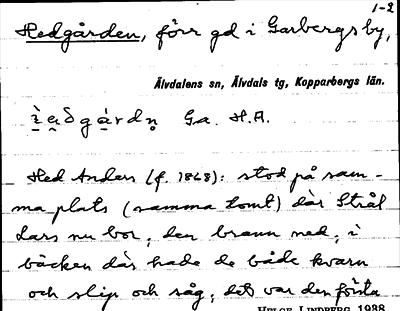 1-2
Hedgården, förr gd i Garbergs by,
Älvdalens sn, Älvdals tg, Kopparbergs län.
Ga. H.A.
Hed Anders (f. 1868): stod på sam-
ma plats (samma tomt) där Strål
Lars nu bor, den brann ned, i
bäcken där hade de både kvarn
och slip och såg, det var den första
HELGE LINDBERG 1938